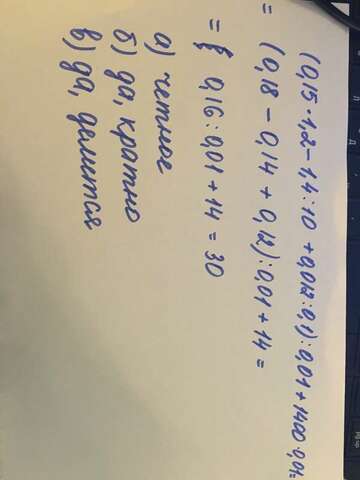 (0,15·1,2-1,4:10+0,012:0,1):0,01+1400·0,01=
=(0,18-0,14+0,12):0,01+14=
=0,16:0,01+14=30
а) четное
б) да, кратно
в) да, делится